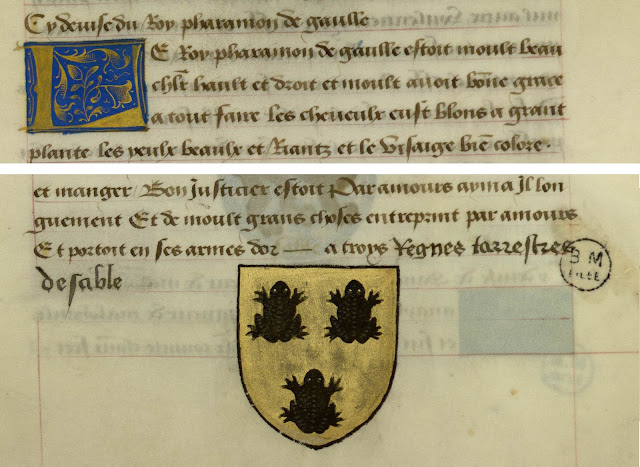 Cy devise du Roy pharamon de gaulle
LE Roy pharamon de gaulle estoit moult beau
chlr hault et droit et moult avoit bone grace
a tout faire les cheveulx eust blons a grant
plante les yeulx beaulx et Riantz et le visaige bie colore.
et manger / Bon Justicier estoit Par amours ayma Il lon
guement Et de moult grans choses entreprint par amours
Et portoit en ses armes dor — a troys Regnes terrestres
de sable
B M
LILLE